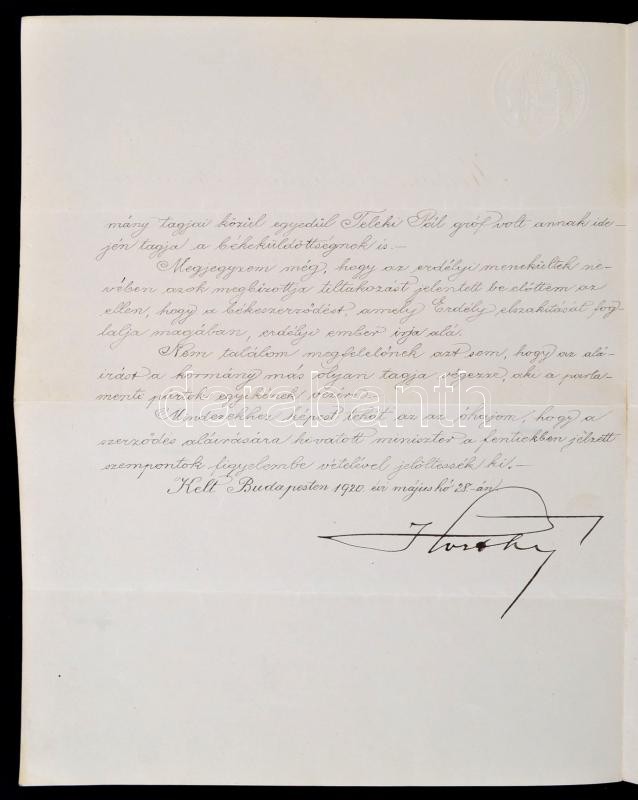 mány tagjai közül egyedül Teleki Pál gróf volt annak ide-
jén tagja a békeküldöttségnek is.—
Megjegyzem még, hogy az erdélyi menekültek ne-
vében azok megbizottja tiltakozást jelentett be előttem az
ellen, hogy a békeszerződést, amely Erdély elszakitását fog-
lalja magában, erdélyi ember irja alá.
Nem találom megfelelőnek azt sem, hogy az alá-
irást a kormány más olyan tagja végezze, aki a parla-
menti pártok egyikének vezére.
Mindezekhez képest tehát az az óhajom, hogy a
szerződés aláirására hivatott miniszter a fentiekben jelzett
szempontok figyelembe vételével jelöltessék ki.—
Kelt Budapesten 1920. évi május hó 28-án.
Horthy
darabanth